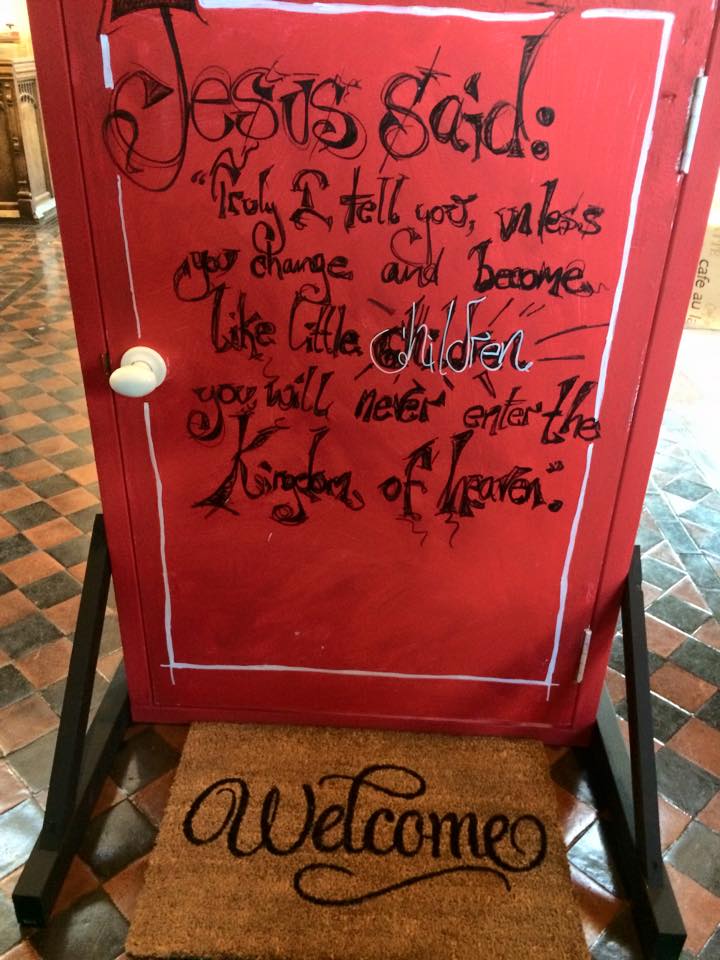 Jesus said:
"Truly I tell you, unless
you change and become
like little children
you will never enter the
Kingdom of heaven."
cafe au
Welcome